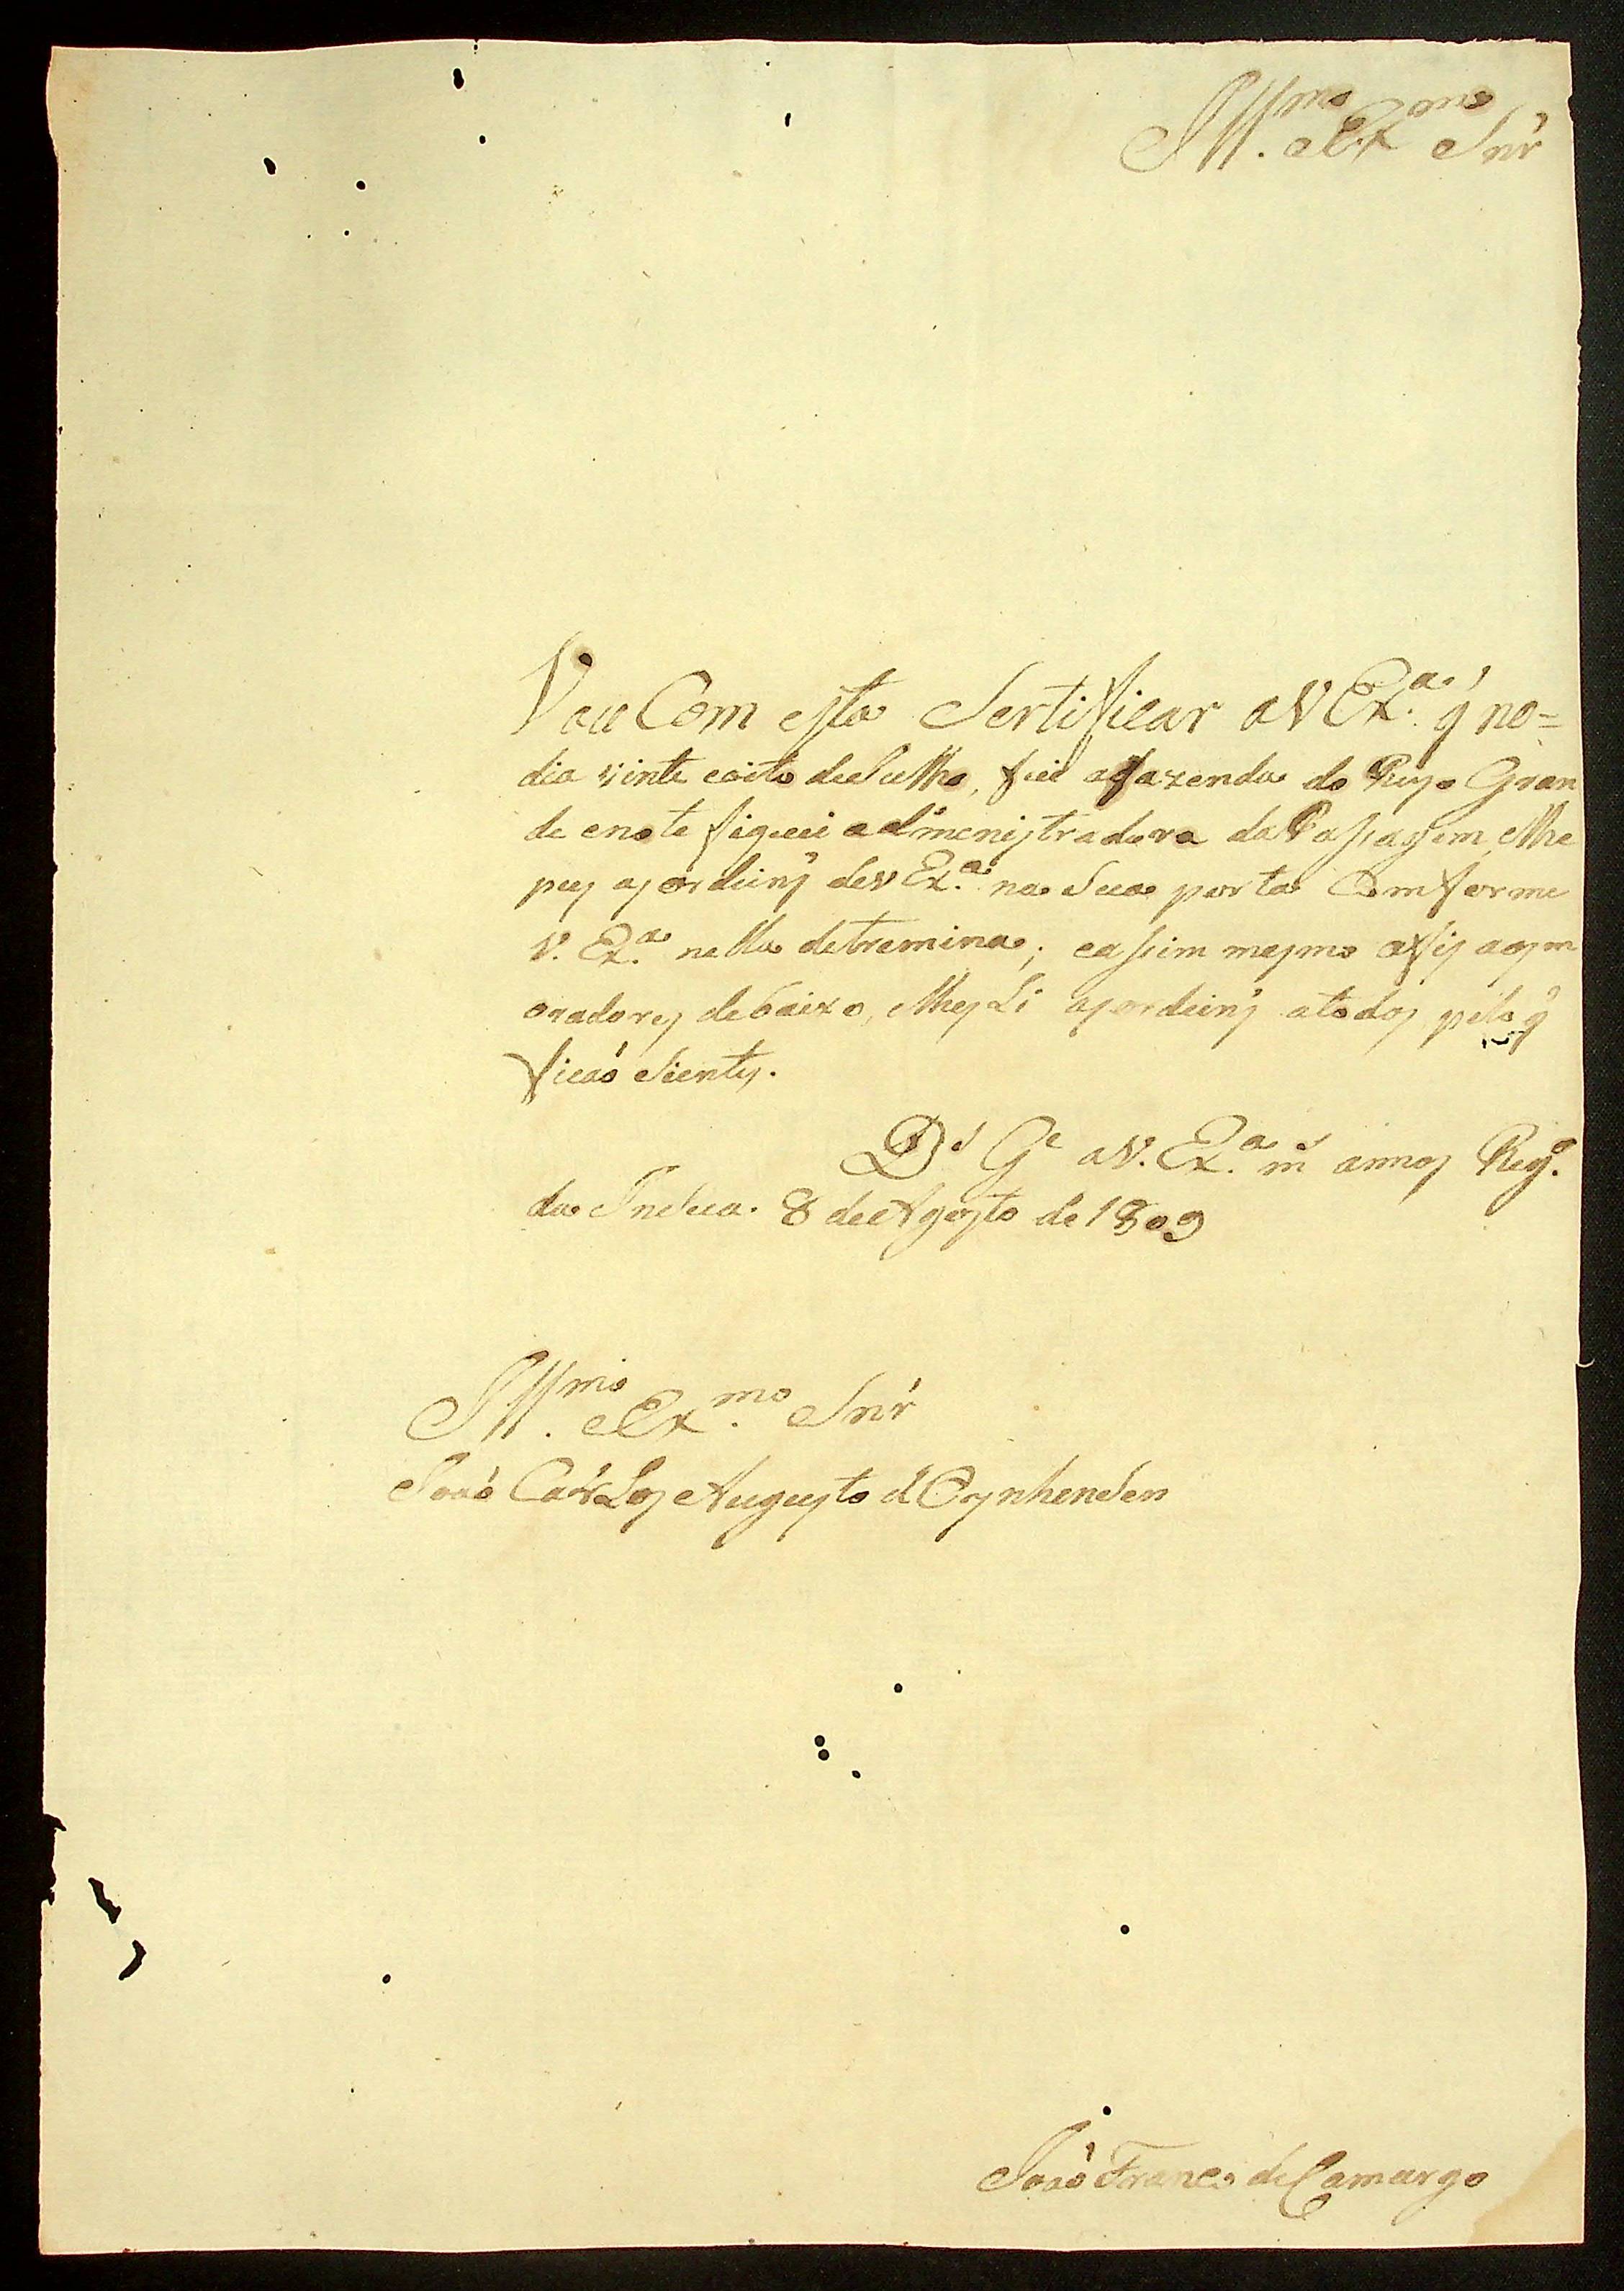 Ill.mo e Ex.mo Snr'
Vou Com esta Sertificar a V Ex.a q' no=
dia vinte eoito deJulho, fui afazenda do Rego Gran
de enotefiquei admenistradora daPasagem, elhe
pus asordeins deV Ex.a na Sua porta Comforme
V. Ex.a nella detremina; easim mesmo afis aosm
oradores debaixo, elhesLi asordeins atodos pelo q'
ficaó Sientes.
D.s G.e aV. Ex.a m.s annos Reg.o
da 8 deAgosto de 1809
Ill.mo e Ex.mo Snr'
Joaó CarLos Augusto d'Oynhensen
Joaó Franco deCamargo